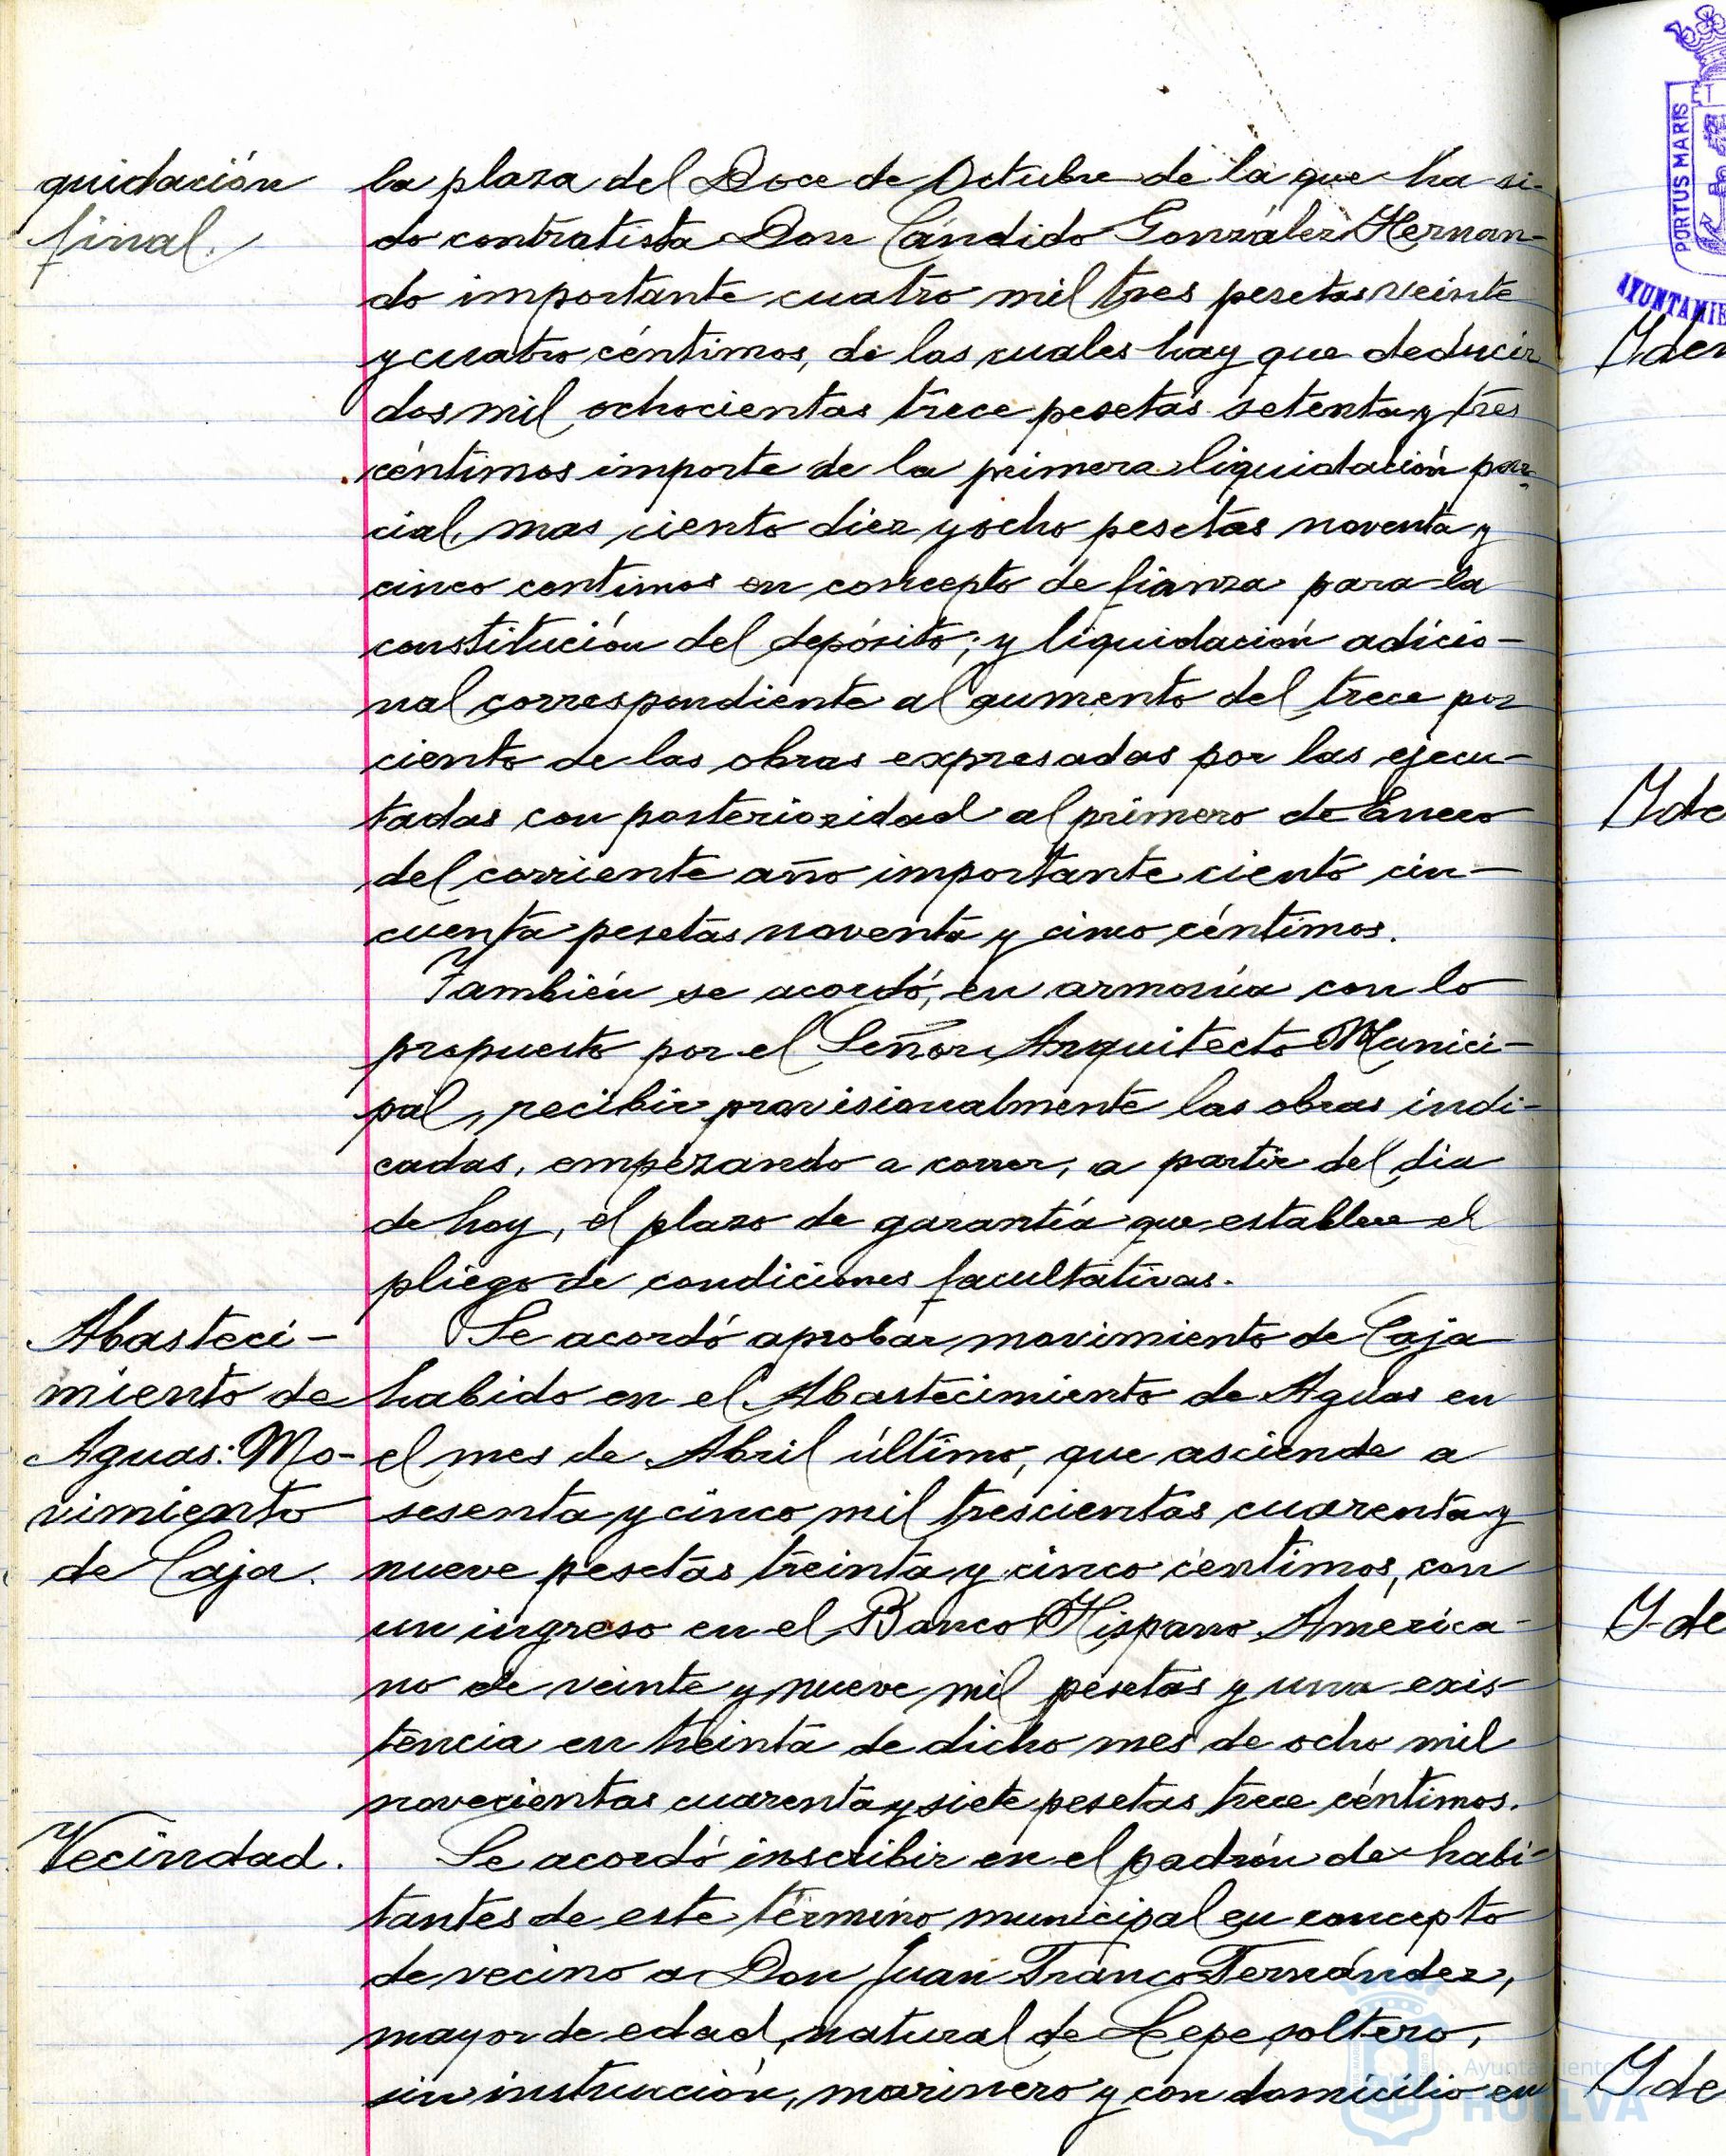 quidación
final.
la plaza del Doce de Octubre de la que ha si-
do contratista Don Cándido González Hernan-
do importante cuatro mil tres pesetas veinte
y cuatro céntimos, de las cuales hay que deducir
dos mil ochocientas trece pesetas setenta y tres
céntimos importe de la primera liquidación par-
cial, mas ciento diez y ocho pesetas noventa y
cinco centimos en concepto de fianza para la
constitución del depósito; y liquidación adicio-
nal correspondiente al aumento del trece por
ciento de las obras expresadas por las ejecu-
tadas con posterioridad al primero de Enero
del corriente año importante ciento cin-
cuenta pesetas noventa y cinco céntimos.
También se acordó, en armonía con lo
propuesto por el Señor Arquitecto Munici-
pal, recibir provisionalmente las obras indi-
cadas, empezando a correr, a partir del dia
de hoy, el plazo de garantía que establece el
pliego de condiciones facultativas.
Abasteci-
miento de
Aguas: Mo-
vimiento
de Caja.
Se acordó aprobar movimiento de Caja
habido en el Abastecimiento de Aguas en
el mes de Abril último, que asciende a
sesenta y cinco mil trescientas cuarenta y
nueve pesetas treinta y cinco centimos, con
un ingreso en el Banco Hispano America-
no de veinte y nueve mil pesetas y una exis-
tencia en treinta de dicho mes de ocho mil
novecientas cuarenta y siete pesetas trece céntimos.
Vecindad.
Se acordó inscribir en el padrón de habi-
tantes de este término municipal en concepto
de vecino a Don Juan Franco Fernández,
mayor de edad, natural de Lepe, soltero,
sin instrucción, marinero y con domicilio en
PORTUS MARIS
AYUNTAMIE
Iden
Ide
Ide
Ide
Ayuntamiento de
HUELVA